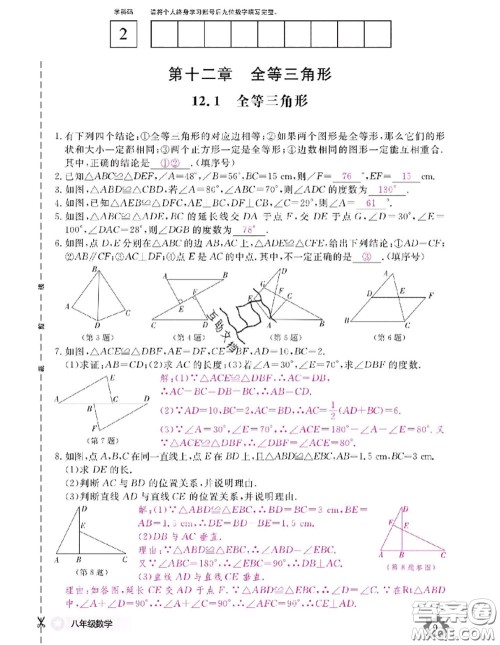 学科码 请将个人终身学习账号后九位数字填写完整。
2
第十二章 全等三角形
12.1 全等三角形
1.有下列四个结论:①全等三角形的对应边相等;②如果两个图形是全等形,那么它们的形
状和大小一定都相同;③两个正方形一定是全等形;④边数相同的图形一定能互相重合.
其中,正确的结论是 ①② .(填序号)
2.已知△ABC≌△DEF,∠A=48°,∠B=56°,BC=15 cm,则∠F= 76 °,EF= 15 cm.
3.如图,△ABD≌△CBD,若∠A=80°,∠ABC=70°,则∠ADC的度数为
4.如图,已知△AEB≌△DFC,AE⊥BC,DF⊥CB,∠C=29°,则∠A= 61 °.
5.如图,△ABC≌△ADE,BC的延长线交DA于点F,交DE于点G,∠D=30°,∠E=
100°,∠DAC=28°,则∠DGB的度数为 78° .
6.如图,点D,E分别在△ABC的边AB,AC上,△ADE≌△CFE,给出下列结论:①AD=CF;
②AB∥CF;③AC⊥DF;④点E是AC的中点,其中,不一定正确的是 ③ .(填序号)
(第3题) (第4题) (第5题) (第6题)
7.如图,△ACE≌△DBF,AE=DF,CE=BF,AD=10,BC=2.
(1)求证:AB=CD;(2)求AC的长度;(3)若∠A=30°,∠E=70°,求∠DBF的度数.
解:(1)∵△ACE≌△DBF,∴AC=DB.
∴AC-BC=DB-BC.∴AB=CD.
(2)∵AD=10,BC=2,∴AC=1/2(AD+BC)=6.
(3)∵∠A=30°,∠E=70°,∴∠ACE=180°-∠A-∠E=80°.
∵△ACE≌△DBF,∴∠DBF=∠ACE=80°.
(第7题)
8.如图,点A,B,C在同一直线上,点E在BD上,且△ABD≌△EBC,AB=1.5 cm,BC=3 cm.
(1)求DE的长.
(2)判断AC与BD的位置关系,并说明理由.
(3)判断直线AD与直线CE的位置关系,并说明理由.
解:(1)∵△ABD≌△EBC,∴BD=BC=3 cm,BE=
AB=1.5 cm,∴DE=BD-BE=1.5 cm.
(2)DB与AC垂直.
理由:∵△ABD≌△EBC,∴∠ABD=∠EBC.
又∠ABD+∠EBC=180°,∴∠EBC=90°,∴DB⊥AC.
(3)直线AD与直线CE垂直.
(第8题) (第8题答图)
理由:如答图,延长CE交AD于F.∵△ABD≌△EBC,∴∠D=∠C.∵在Rt△ABD
中,∠A+∠D=90°,∴∠A+∠C=90°,∴∠AFC=90°,即CE⊥AD.
八年级数学
互助文档
答案圈
MXQE.COM